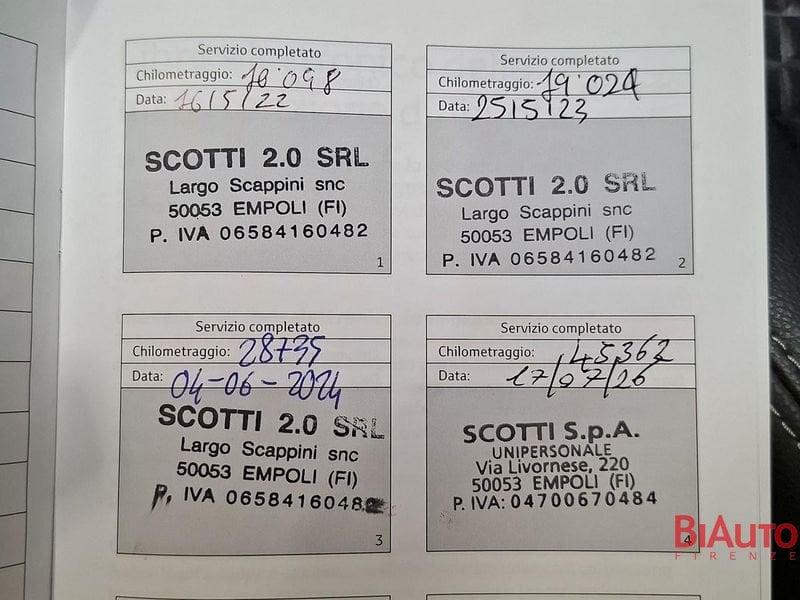 Servizio completato
Chilometraggio: 10'098
Data: 16/5/22
SCOTTI 2.0 SRL
Largo Scappini snc
50053 EMPOLI (FI)
P. IVA 06584160482
1
Servizio completato
Chilometraggio: 19'024
Data: 25/5/23
SCOTTI 2.0 SRL
Largo Scappini snc
50053 EMPOLI (FI)
P. IVA 06584160482
2
Servizio completato
Chilometraggio: 28735
Data: 04-06-2024
SCOTTI 2.0 SRL
Largo Scappini snc
50053 EMPOLI (FI)
P. IVA 06584160482
3
Servizio completato
Chilometraggio: 45362
Data: 17/07/26
SCOTTI S.p.A.
UNIPERSONALE
Via Livornese, 220
50053 EMPOLI (FI)
P. IVA: 04700670484
4
BIAUTO
FIRENZE